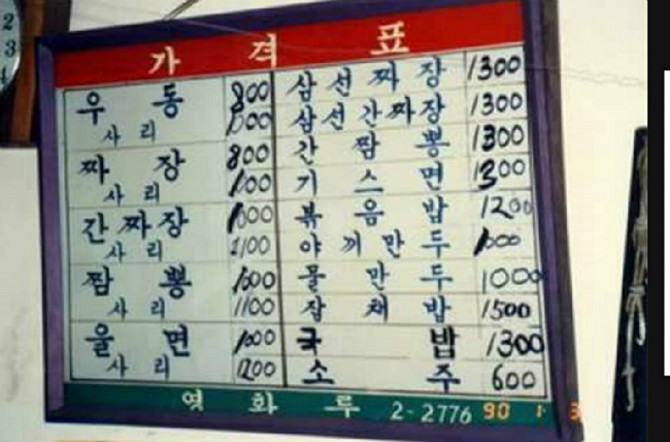 가 격 표
우 동 800
사 리 1000
짜 장 800
사 리 1000
간 짜 장 1000
사 리 1100
짬 뽕 1000
사 리 1100
울 면 1000
사 리 1200
삼 선 짜 장 1300
삼 선 간 짜 장 1300
간 짬 뽕 1300
기 스 면 1300
볶 음 밥 1200
야 끼 만 두 1000
물 만 두 1000
잡 채 밥 1500
국 밥 1300
소 주 600
영 화 루 2-2776
90 1 3